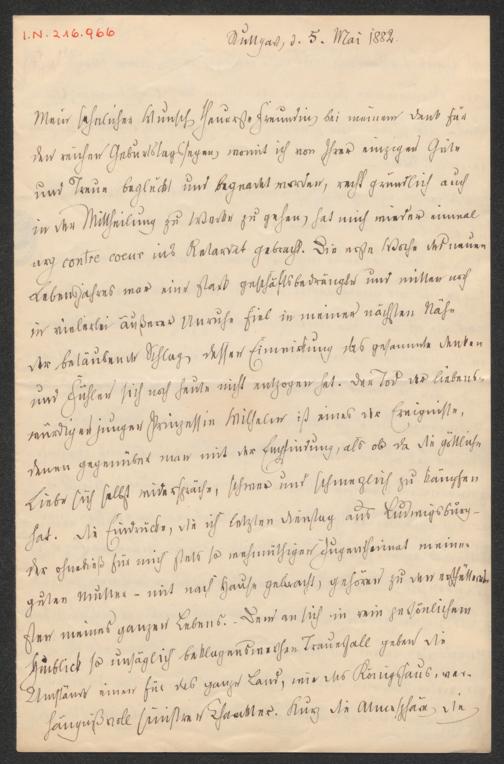 I.N. 216.966
Stuttgart, d. 5. Mai 1882.
Mein sehnlicher Wunsch, theuerste Freundin, bei meinem Dank für
den reichen Geburtstagssegen, womit ich von Ihrer einzigen Güte
und Treue beglückt und begnadet worden, recht gründlich auch
in der Mittheilung zu Werke zu gehen, hat mich wieder einmal
arg contre coeur ins Retardat gebracht. Die erste Woche des neuen
Lebensjahres war eine stark geschäftsbedrängte und mitten noch
in vielerlei äußerer Unruhe fiel in meiner nächsten Nähe
der betäubende Schlag, dessen Einwirkung das gesammte Denken
und Fühlen sich noch heute nicht entzogen hat. Der Tod der liebens-
würdigen jungen Prinzessin Wilhelm ist eines der Ereignisse,
denen gegenüber man mit der Empfindung, als ob da die göttliche
Liebe sich selbst widerspräche, schwer und schmerzlich zu kämpfen
hat. Die Eindrücke, die ich letzten Dienstag aus Ludwigsburg –
der ohnedieß für mich stets so wehmüthigen Jugendheimat meiner
guten Mutter – mit nach Hause gebracht, gehören zu den erschütternd-
sten meines ganzen Lebens. – Dem an sich in rein persönlichem
Hinblick so unsäglich beklagenswerthen Trauerfall geben die
Umstände einen für das ganze Land, wie das Königshaus, ver-
hängnißvoll sinistren Charakter. Kurz die Atmosphäre, die